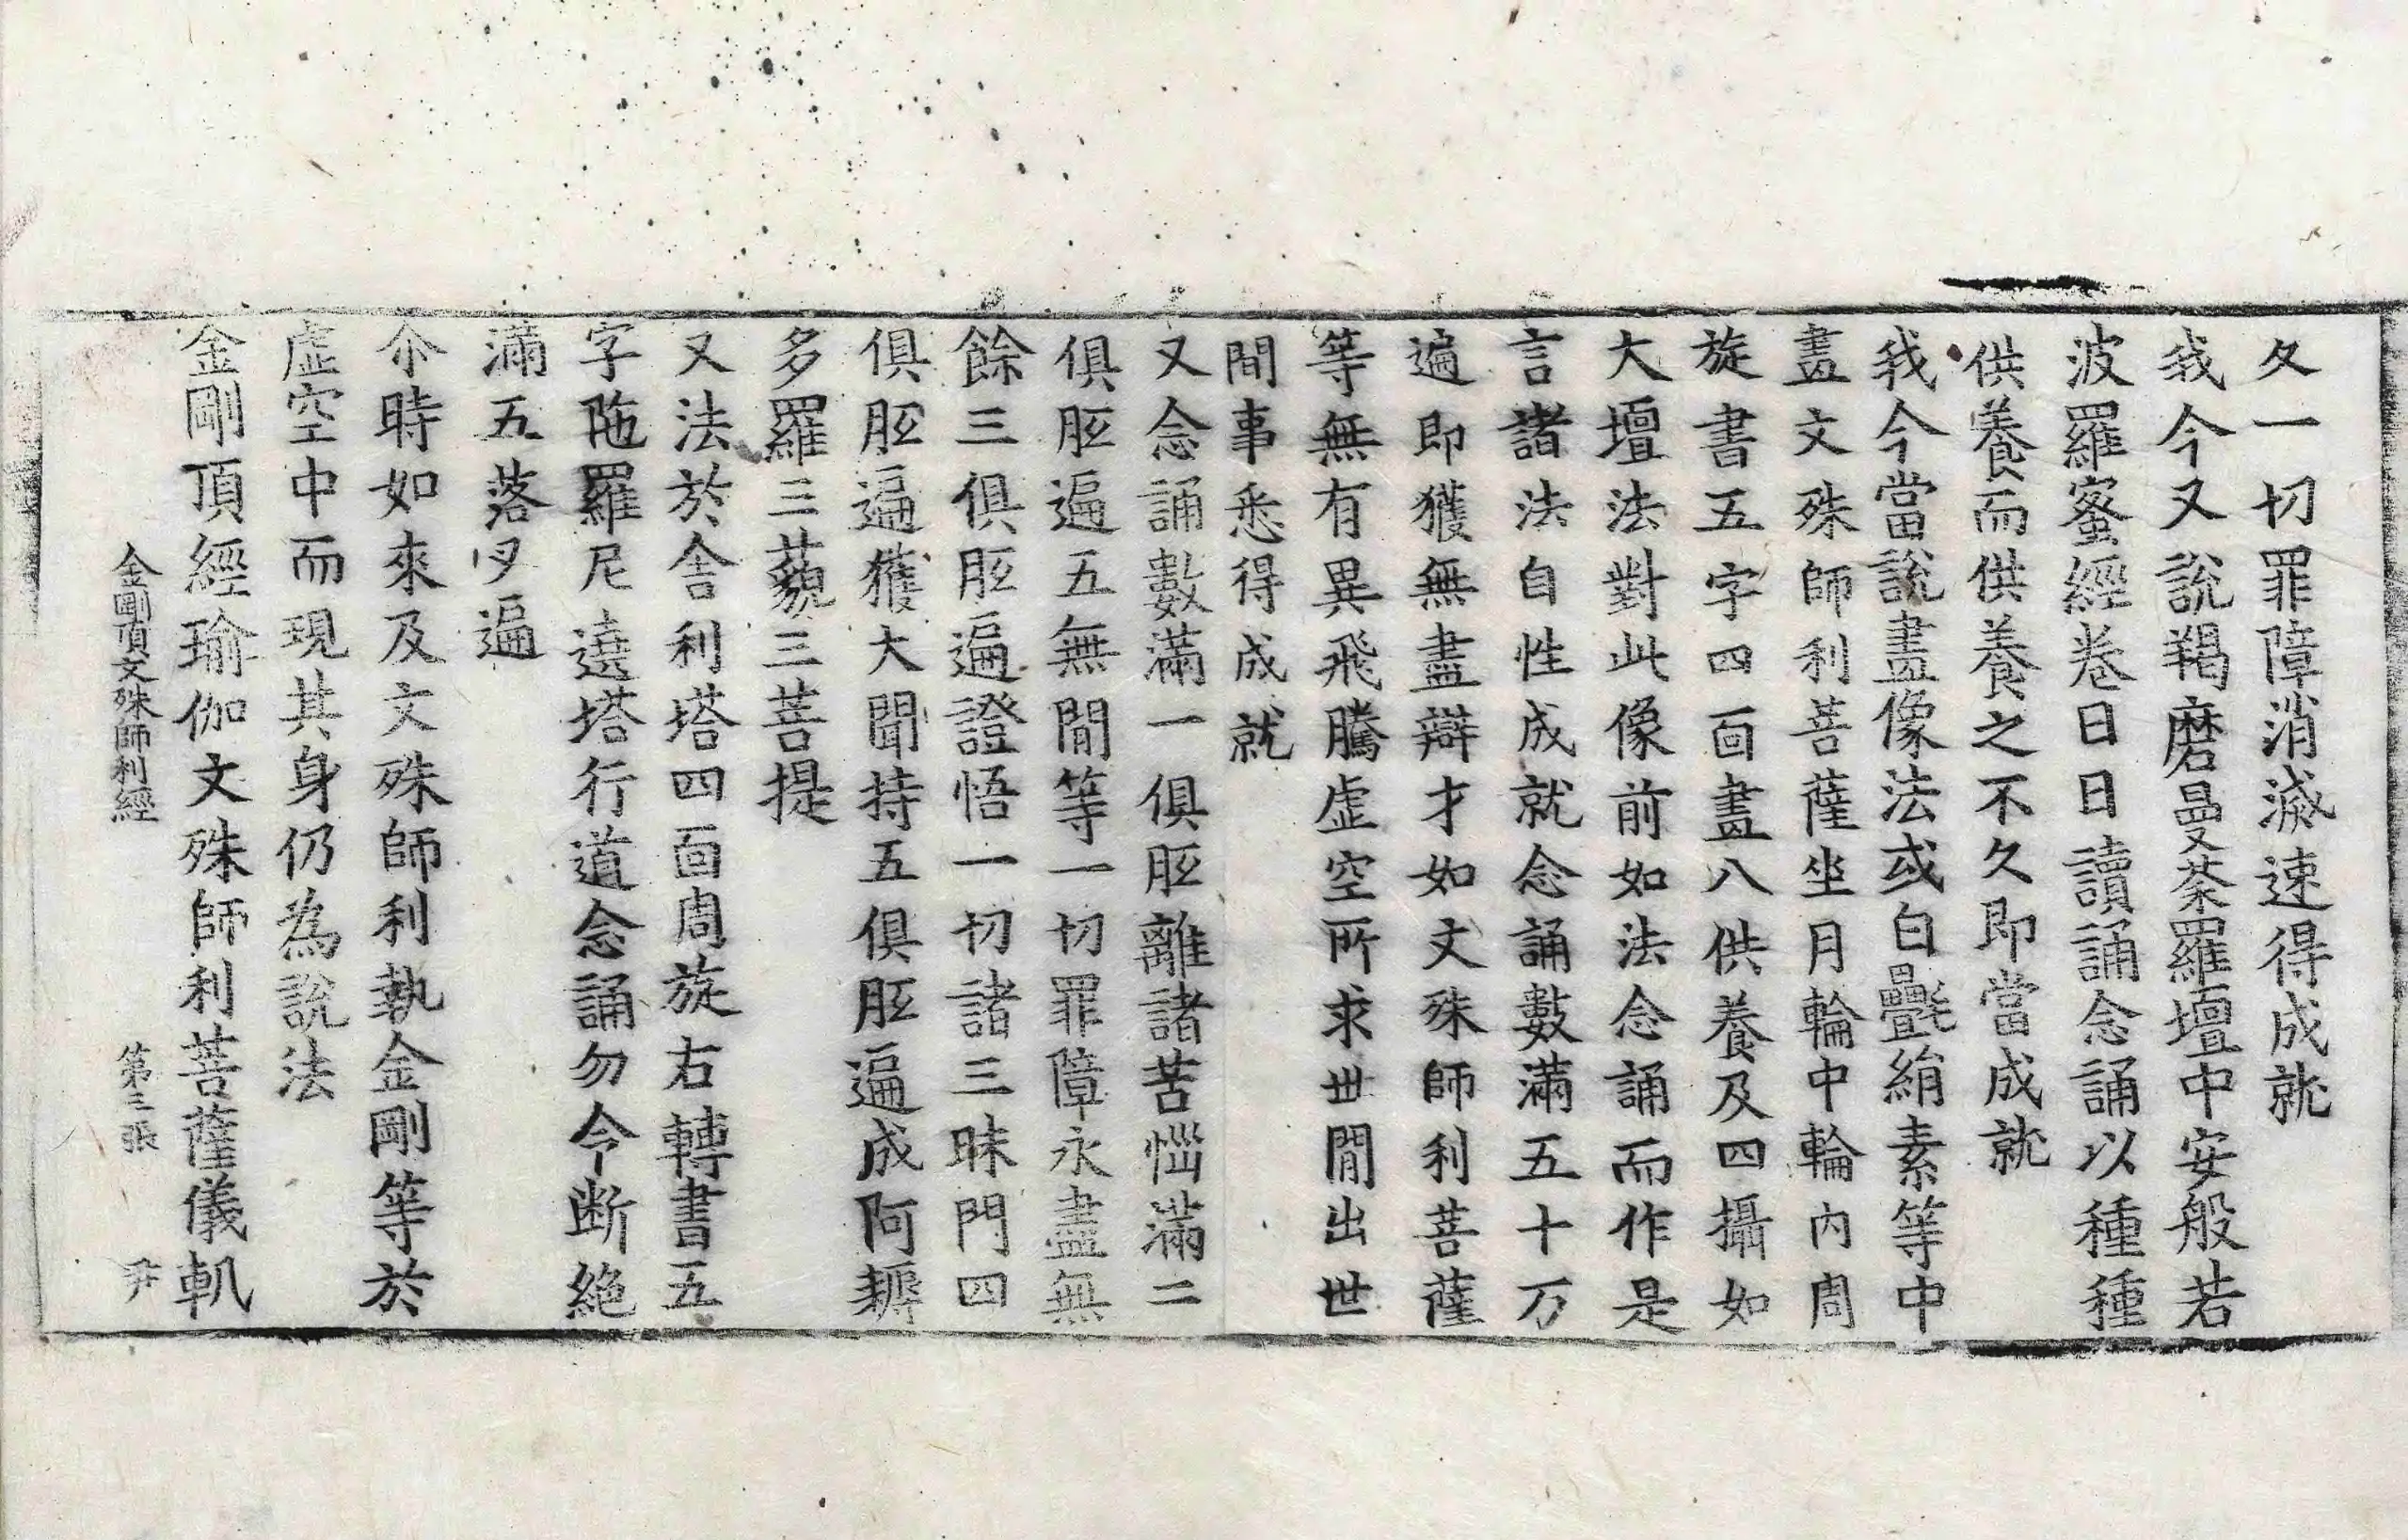 久一切罪障消滅速得成就
我今又說羯磨曼荼羅壇中安般若
波羅蜜經卷日日讀誦念誦以種種
供養而供養之不久即當成就
我今當說畫像法或白㲲絹素等中
畫文殊師利菩薩坐月輪中輪內周
旋書五字四面畫八供養及四攝如
大壇法對此像前如法念誦而作是
言諸法自性成就念誦數滿五十万
遍即獲無盡辯才如文殊師利菩薩
等無有異飛騰虛空所求世間出世
間事悉得成就
又念誦數滿一俱胝離諸苦惱滿二
俱胝遍五無間等一切罪障永盡無
餘三俱胝遍證悟一切諸三昧門四
俱胝遍獲大聞持五俱胝遍成阿耨
多羅三藐三菩提
又法於舍利塔四面周旋右轉書五
字陁羅尼遶塔行道念誦勿令断絕
滿五落叉遍
尒時如來及文殊師利執金剛等於
虛空中而現其身仍為說法
金剛頂經瑜伽文殊師利菩薩儀軌
金剛頂文殊師利經 第三張 尹